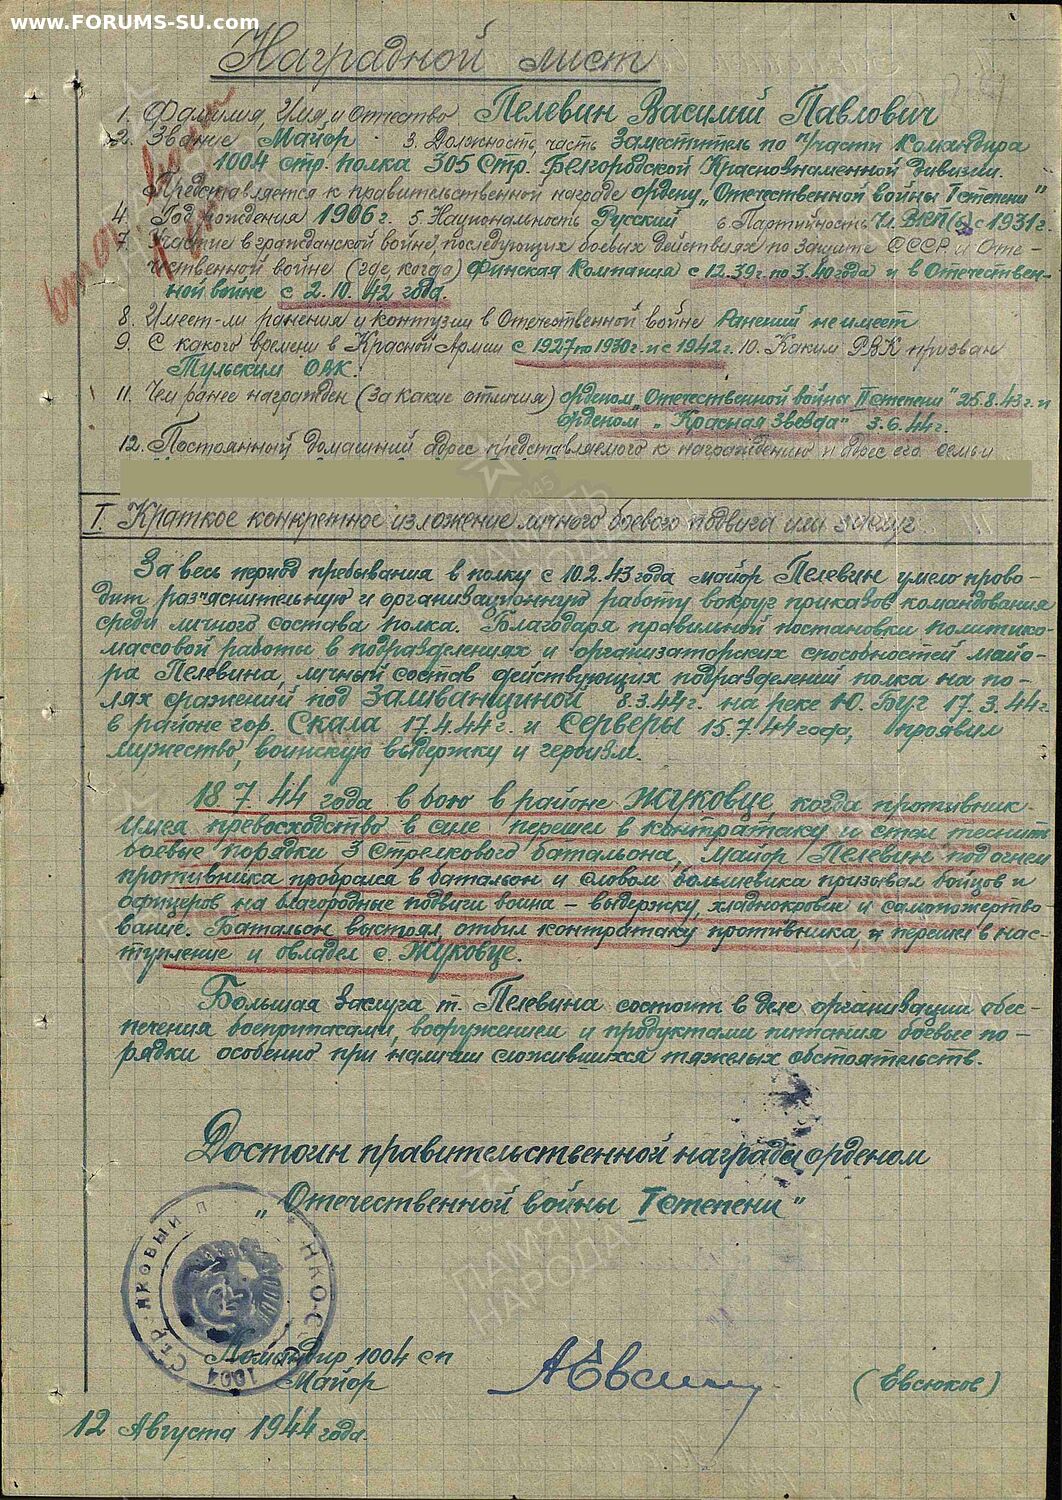 www.FORUMS-SU.com
Наградной лист
1. Фамилия, Имя и Отчество Пелевин Василий Павлович
2. Звание Майор 3. Должность, часть Заместитель по п/части Командира
1004 стр. полка 305 Стр. Белгородской Краснознаменной дивизии.
Представляется к правительственной награде ордену „Отечественной войны I степени"
4. Год рождения 1906 г. 5. Национальность Русский 6. Партийность Чл. ВКП(б) с 1931 г.
7. Участие в гражданской войне, последующих боевых действиях по защите СССР и Оте-
чественной войне (где, когда) Финская Компания с 12.39 г. по 3.40 года и в Отечествен-
ной войне с 2.10.42 года.
8. Имеет-ли ранения и контузии в Отечественной войне Ранений не имеет
9. С какого времени в Красной Армии с 1927 по 1930 г. и с 1942 г. 10. Каким РВК призван
Тульским ОАК.
11. Чем ранее награжден (за какие отличия) орденом „Отечественной войны II степени" 25.8.43 г. и
орденом „Красная Звезда" 3.6.44 г.
12. Постоянный домашний адрес представляемого к награждению и адрес его семьи
I. Краткое конкретное изложение личного боевого подвига или заслуг
За весь период пребывания в полку с 10.2.43 года майор Пелевин умело прово-
дит раз"яснительную и организационную работу вокруг приказов командования
среди личного состава полка. Благодаря правильной постановки политико-
массовой работы в подразделениях и организаторских способностей майо-
ра Пелевина, личный состав действующих подразделений полка на по-
лях сражений под Заливанщиной 8.3.44 г. на реке Ю. Буг 17.3.44 г.
в районе гор. Скала 17.4.44 г. и Серверы 15.7.44 года, проявил
мужество, воинскую выдержку и героизм.
18.7.44 года в бою в районе Жуковце, когда противник
имея превосходство в силе перешел в контратаку и стал теснить
боевые порядки 3 Стрелкового батальона, Майор Пелевин под огнем
противника пробрался в батальон и словом большевика призывал бойцов и
офицеров на благородные подвиги воина – выдержку, хладнокровие и самопожертво-
вание. Батальон выстоял, отбил контратаку противника, и перешел в нас-
тупление и овладел с. Жуковце.
Большая заслуга т. Пелевина состоит в деле организации обес-
печения боеприпасами, вооружением и продуктами питания боевые по-
рядки особенно при наличии сложившихся тяжелых обстоятельств.
Достоин правительственной награды орденом
„Отечественной войны I степени"
Командир 1004 сп
Майор
(Евсюков)
12 Августа 1944 года.
ПАМЯТЬ НАРОДА